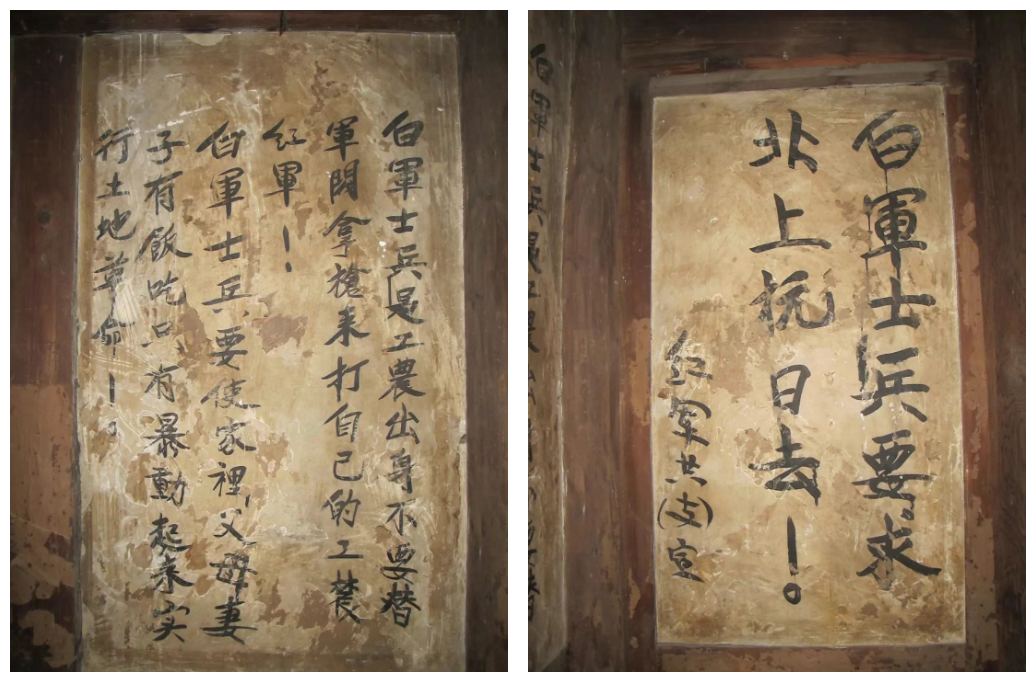 白軍士兵是工農出身不要替
軍閥拿槍来打自己的工農
紅軍！
白軍士兵要使家裡父母妻
子有飯吃只有暴動起来实
行土地革命！。
白軍士兵要求
北上抗日去！。
红军共(支)宣
白軍士兵是工農出